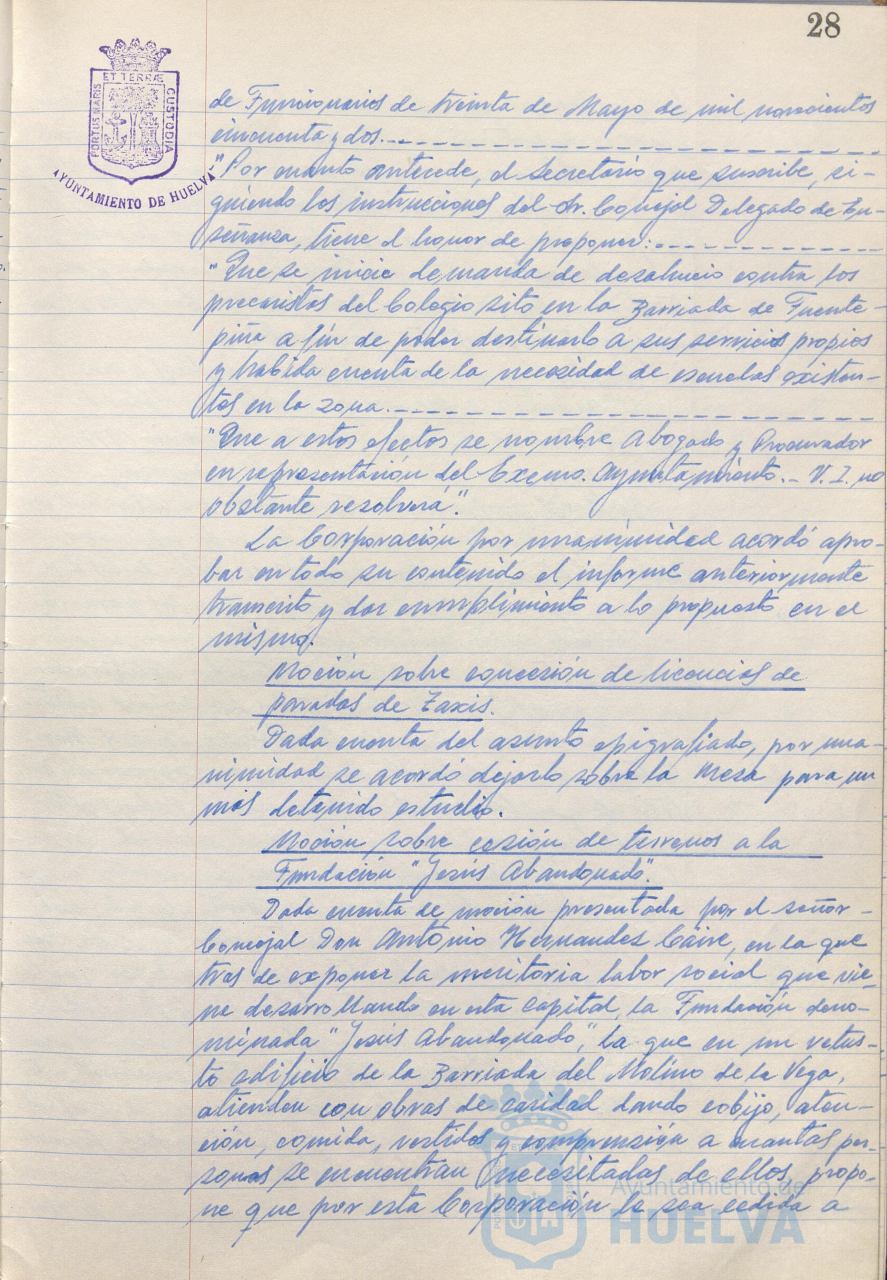 28
PORTUS MARIS ET TERRÆ CUSTODIA
AYUNTAMIENTO DE HUELVA
de Funcionarios de treinta de Mayo de mil novecientos
cincuenta y dos.-
"Por cuanto antecede, el Secretario que suscribe, si-
guiendo las instrucciones del Sr. Concejal Delegado de En-
señanza, tiene el honor de proponer:-
"Que se inicie demanda de desahucio contra los
precaristas del Colegio sito en la Barriada de Fuente-
piña a fin de poder destinarlo a sus servicios propios
y habida cuenta de la necesidad de escuelas existen-
tes en la zona.-
"Que a estos efectos se nombre Abogado y Procurador
en representación del Excmo. Ayuntamiento.- V.I. no
obstante resolverá".
La Corporación por unanimidad acordó apro-
bar en todo su contenido el informe anteriormente
transcrito y dar cumplimiento a lo propuesto en el
mismo.
Moción sobre concesión de licencias de
paradas de Taxis.
Dada cuenta del asunto epigrafiado, por una-
nimidad se acordó dejarlo sobre la Mesa para un
más detenido estudio.
Moción sobre cesión de terrenos a la
Fundación "Jesús Abandonado".
Dada cuenta de moción presentada por el señor-
Concejal Don Antonio Hernandez Caire, en la que
tras de exponer la meritoria labor social que vie-
ne desarrollando en esta Capital, la Fundación deno-
minada "Jesús Abandonado", la que en un vetus-
to edificio de la Barriada del Molino de la Vega,
atienden con obras de caridad dando cobijo, aten-
ción, comida, vestidos y comprensión a cuantas per-
sonas se encuentran necesitadas de ellos, propo-
ne que por esta Corporación le sea cedida a
Ayuntamiento de
HUELVA